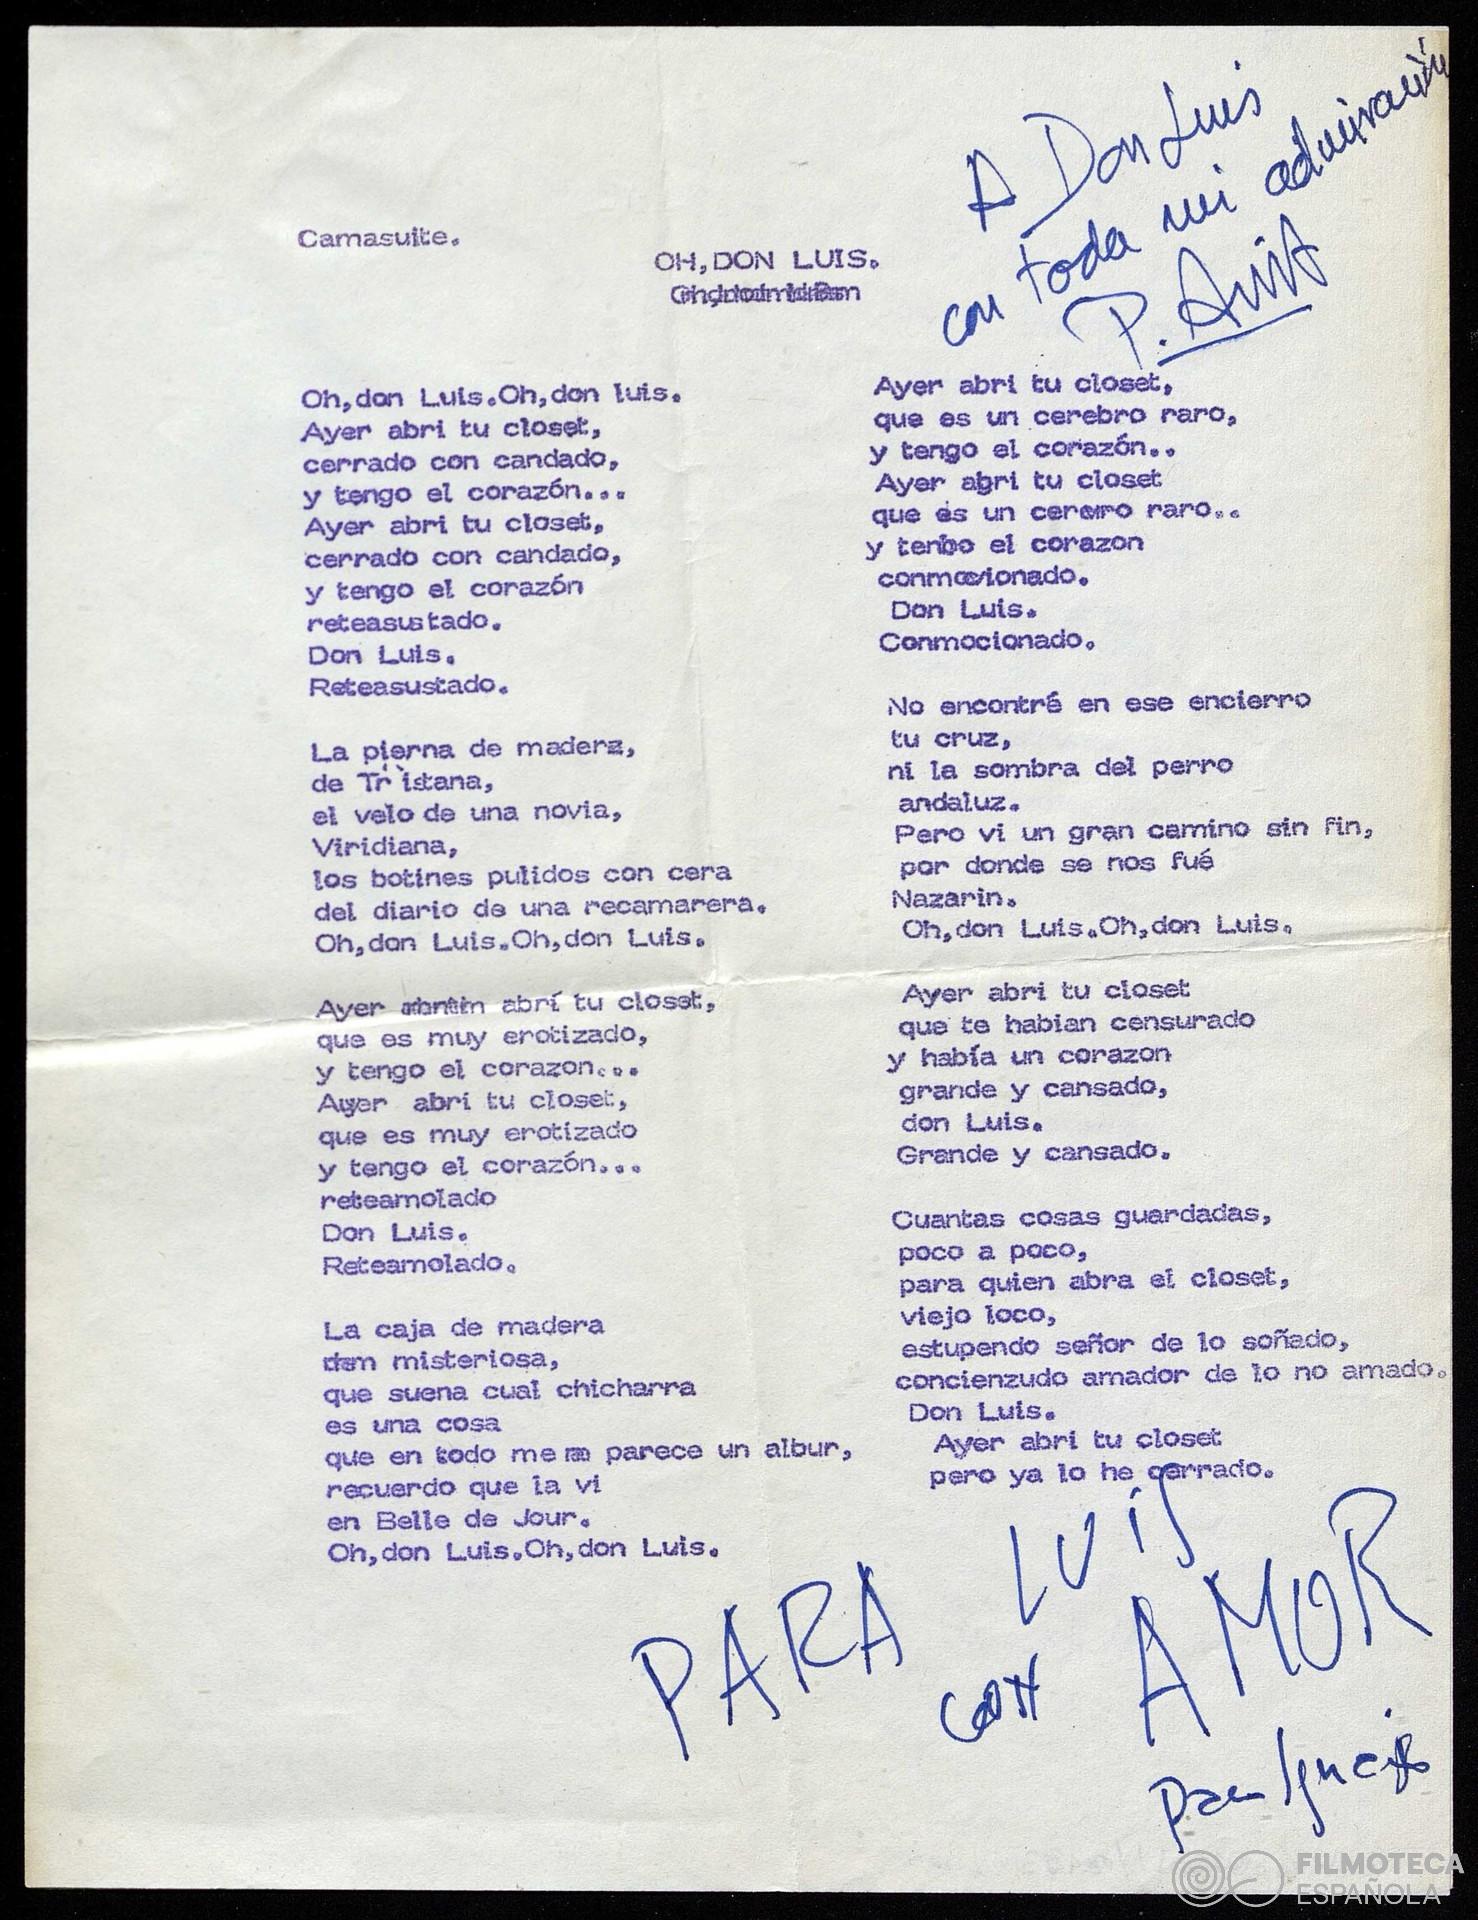 A Don Luis
con toda mi admiración
P.
Camasuite.
OH,DON LUIS.
Oh,don Luis.Oh,don luis.
Ayer abri tu closet,
cerrado con candado,
y tengo el corazón...
Ayer abri tu closet,
cerrado con candado,
y tengo el corazón
reteasustado.
Don Luis.
Reteasustado.
La pierna de madera,
de Tristana,
el velo de una novia,
Viridiana,
los botines pulidos con cera
del diario de una recamarera.
Oh,don Luis.Oh,don Luis.
Ayer abrí tu closet,
que es muy erotizado,
y tengo el corazon...
Ayer abri tu closet,
que es muy erotizado
y tengo el corazón...
reteamolado
Don Luis.
Reteamolado.
La caja de madera
misteriosa,
que suena cual chicharra
es una cosa
que en todo me parece un albur,
recuerdo que la vi
en Belle de Jour.
Oh,don Luis.Oh,don Luis.
Ayer abri tu closet,
que es un cerebro raro,
y tengo el corazón..
Ayer abri tu closet
que es un cerebro raro..
y tengo el corazon
conmocionado.
Don Luis.
Conmocionado.
No encontré en ese encierro
tu cruz,
ni la sombra del perro
andaluz.
Pero vi un gran camino sin fin,
por donde se nos fué
Nazarin.
Oh,don Luis.Oh,don Luis.
Ayer abri tu closet
que te habian censurado
y había un corazon
grande y cansado,
don Luis.
Grande y cansado.
Cuantas cosas guardadas,
poco a poco,
para quien abra el closet,
viejo loco,
estupendo señor de lo soñado,
concienzudo amador de lo no amado.
Don Luis.
Ayer abri tu closet
pero ya lo he cerrado.
PARA LUIS
con AMOR
Ignacio
FILMOTECA
ESPAÑOLA